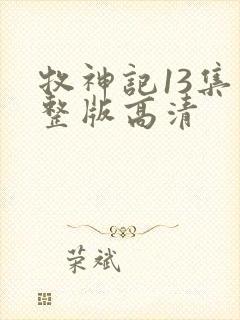 牧神記13集
整版高清
荣斌